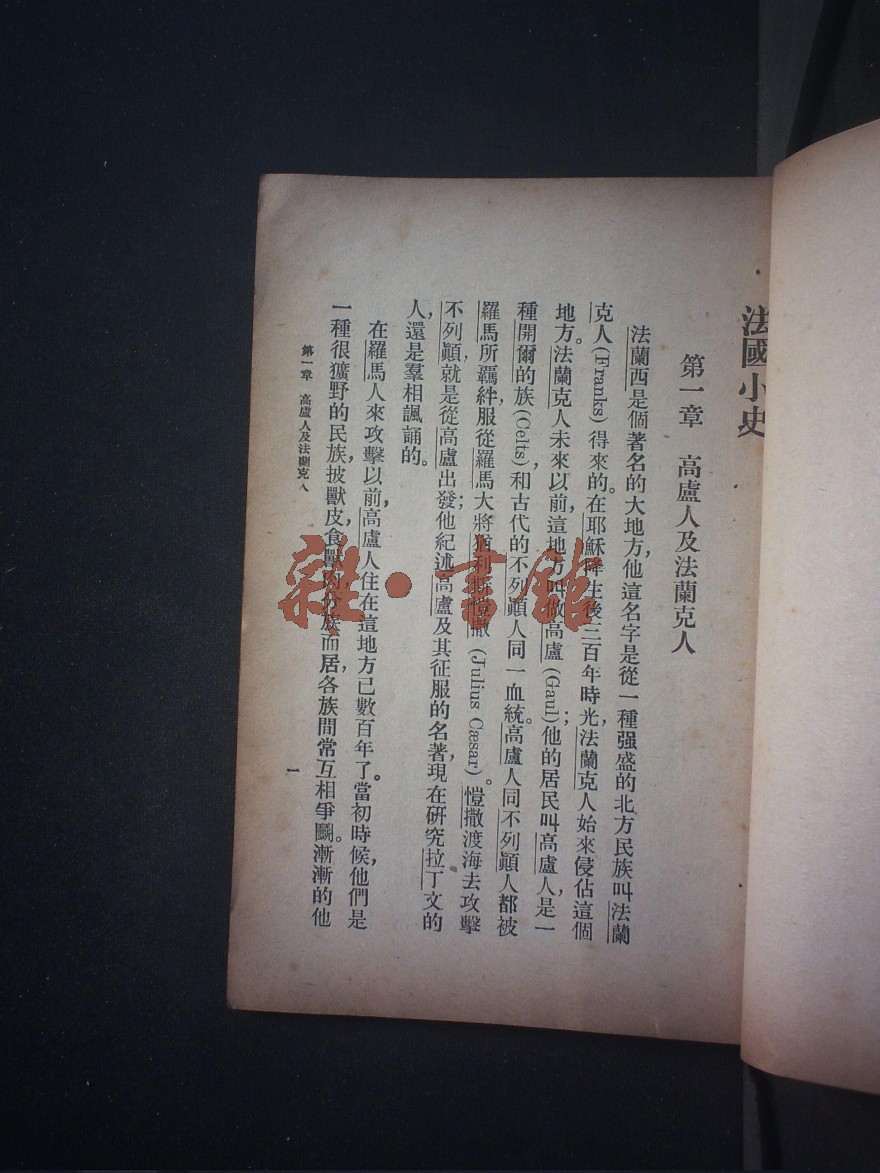 法國小史
第一章　高盧人及法蘭克人
法蘭西是個著名的大地方，他這名字是從一種强盛的北方民族叫法蘭
克人(Franks)得來的。在耶穌降生後三百年時光，法蘭克人始來侵佔這個
地方。法蘭克人未來以前，這地方叫做高盧(Gaul)；他的居民叫高盧人，是一
種開爾的族(Celts)，和古代的不列顚人同一血統。高盧人同不列顚人都被
羅馬所羈絆，服從羅馬大將猶利愷撒(Julius Cæsar)。愷撒渡海去攻擊
不列顚，就是從高盧出發；他紀述高盧及其征服的名著，現在研究拉丁文的
人，還是羣相諷誦的。
在羅馬人來攻擊以前，高盧人住在這地方已數百年了。當初時候，他們是
一種很獷野的民族，披獸皮，食獸肉，分族而居，各族間常互相爭鬭。漸漸的他
第一章　高盧人及法蘭克人
一
雜·書館